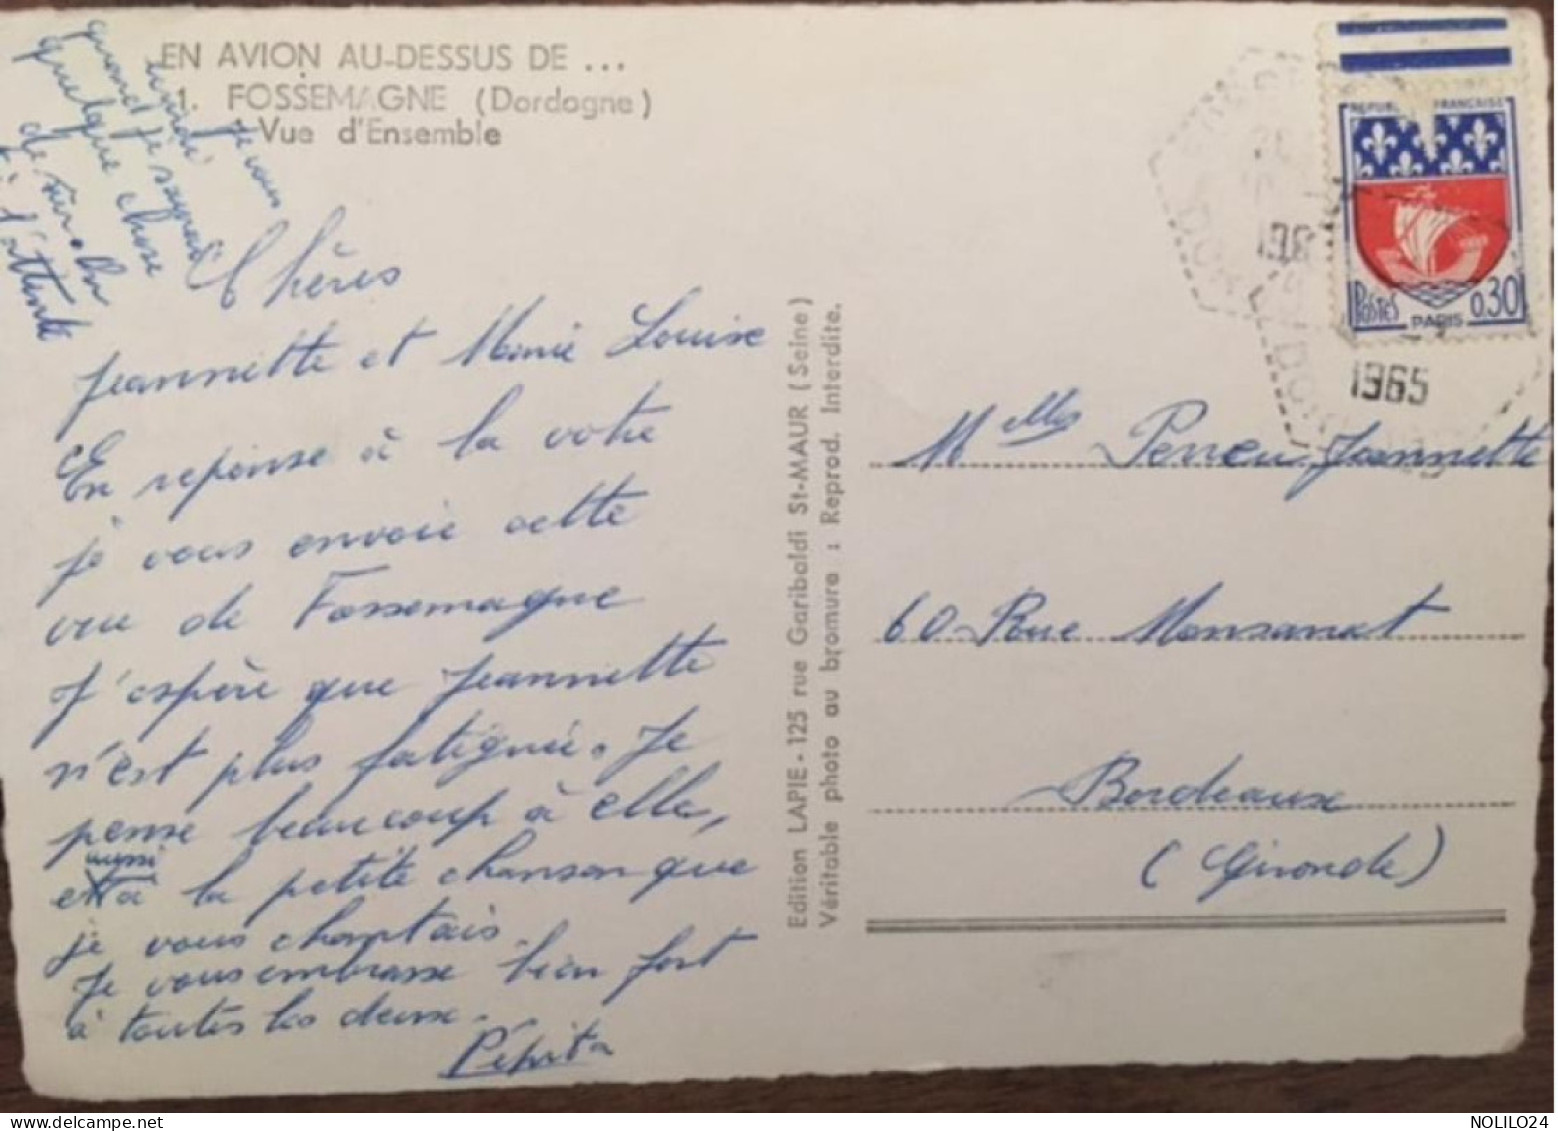 EN AVION AU-DESSUS DE ...
1. FOSSEMAGNE (Dordogne)
Vue d'Ensemble
Je vous
quand je saurai
quelque chose
de sûr. On
à l'attente
Chères
Jeannette et Marie Louise
En reponse à la votre
je vous envoie cette
vue de Fossemagne
J'espère que Jeannette
n'est plus fatiguée. Je
pense beaucoup à elle,
aussi
et à la petite chanson que
je vous chantais.
Je vous embrasse bien fort
à toutes les deux.
Pépita
Edition LAPIE - 125 rue Garibaldi St-MAUR (Seine)
Véritable photo au bromure : Reprod. Interdite.
REPUBLIQUE FRANÇAISE
POSTES
PARIS
0,30
1965
Melles Perreu Jeannette
60 Rue Monsarrat
Bordeaux
(Gironde)
NOLILO24